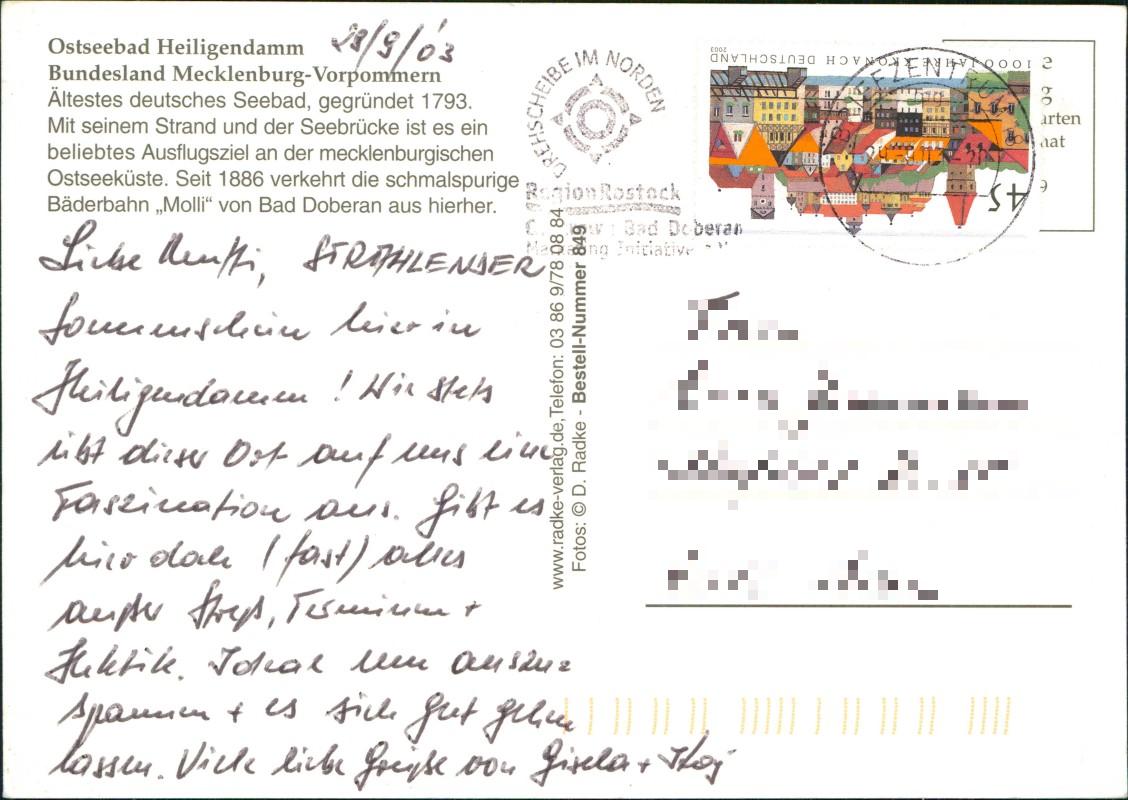 Ostseebad Heiligendamm
28/9/03
Bundesland Mecklenburg-Vorpommern
Ältestes deutsches Seebad, gegründet 1793.
Mit seinem Strand und der Seebrücke ist es ein
beliebtes Ausflugsziel an der mecklenburgischen
Ostseeküste. Seit 1886 verkehrt die schmalspurige
Bäderbahn „Molli“ von Bad Doberan aus hierher.
Liebe STRAHLENDER
Sonnenschein hier in
Heiligendamm! Wie stets
übt dieser Ort auf uns eine
Faszination aus. Gibt es
hier doch (fast) alles
außer Streß, Terminen +
Hektik. Ideal um auszu=
spannen + es sich gut gehen
lassen. Viele liebe Grüße von Gisela +
www.radke-verlag.de, Telefon: 03 86 9/78 08 84
Fotos: © D. Radke - Bestell-Nummer 849
DREHSCHEIBE IM NORDEN
Region Rostock
Bad Doberan
Initiative
1000 JAHRE KRONACH DEUTSCHLAND
2003
45